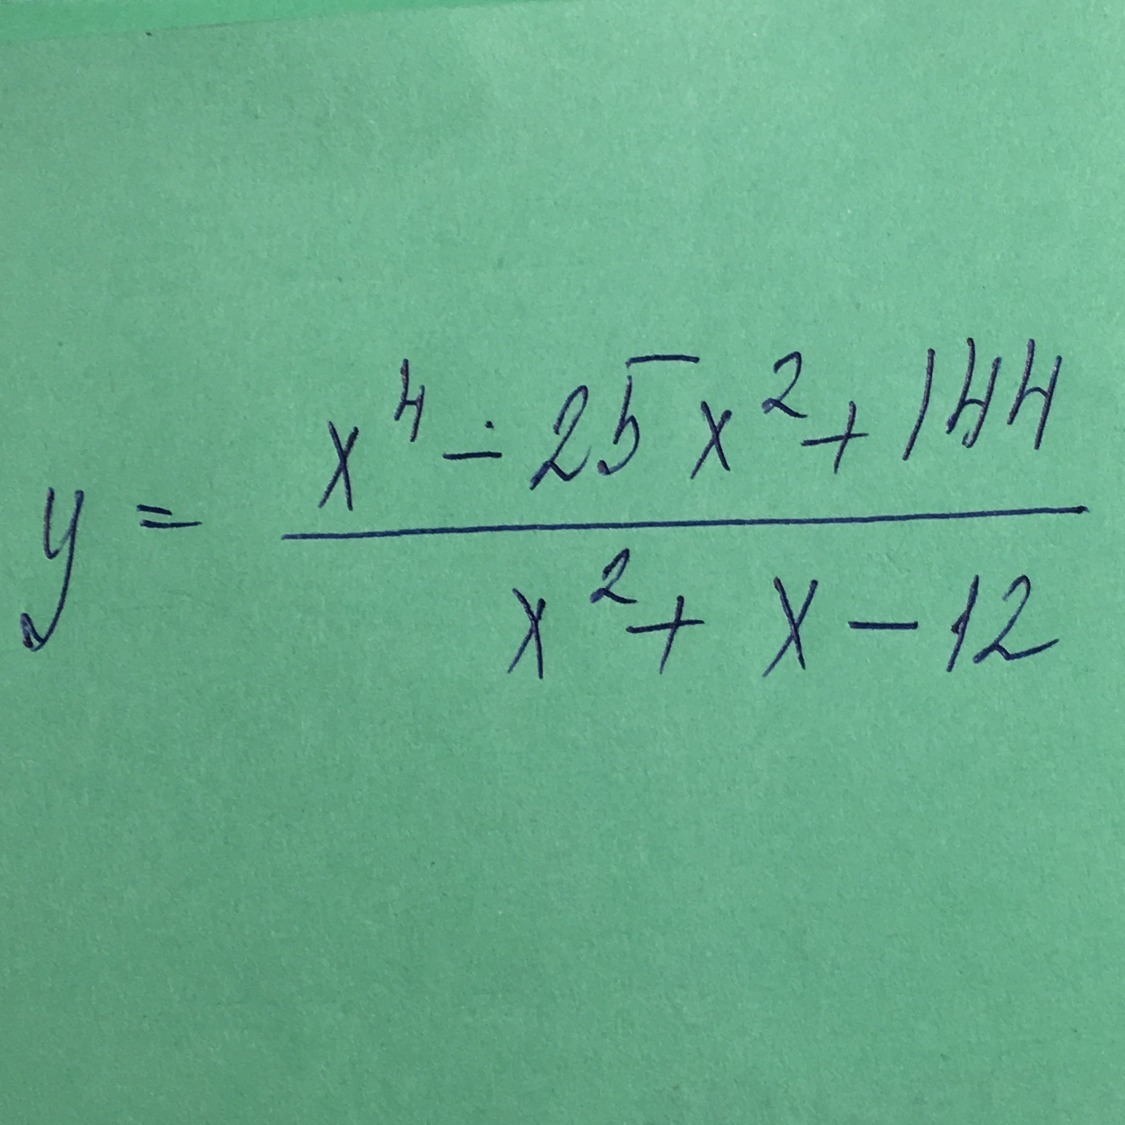 y = (x⁴ - 25x² + 144) / (x² + x - 12)